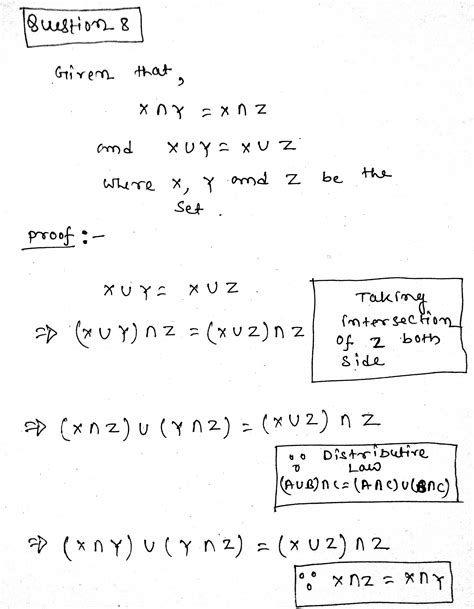 Question 8
Given that,
X ∩ Y = X ∩ Z
and X ∪ Y = X ∪ Z
where X, Y and Z be the
Set.
Proof :-
X ∪ Y = X ∪ Z
⇒ (X ∪ Y) ∩ Z = (X ∪ Z) ∩ Z
Taking
intersection
of Z both
side
⇒ (X ∩ Z) ∪ (Y ∩ Z) = (X ∪ Z) ∩ Z
∵ Distributive
Law
(A∪B)∩C = (A∩C)∪(B∩C)
⇒ (X ∩ Y) ∪ (Y ∩ Z) = (X ∪ Z) ∩ Z
∵ X ∩ Z = X ∩ Y